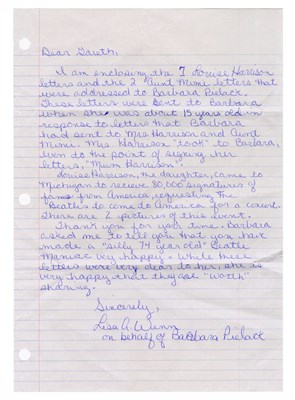 Dear Gareth,
I am enclosing the 7 Louise Harrison
letters and the 2 Aunt Mimi letters that
were addressed to Barbara Pieback.
These letters were sent to Barbara
when she was about 15 years old in
response to letters that Barbara
had sent to Mrs Harrison and Aunt
Mimi. Mrs Harrison "took" to Barbara,
even to the point of signing her
letters, "Mum Harrison".
Louise Harrison, the daughter, came to
Michigan to receive 80,000 signatures of
fans from America, requesting the
Beatles to come to America for a concert.
There are 2 pictures of this event.
Thank you for your time. Barbara
asked me to tell you that you have
made a "silly 74 year old" Beatle
Maniac very happy - While these
letters were very dear to her, she is
very happy that they are "worth"
sharing.
Sincerely,
Lisa A. Wenn
on behalf of Barbara Pieback